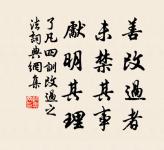 善改過者
未禁其事
獻明其理
了凡四訓改過之
法詞典網集